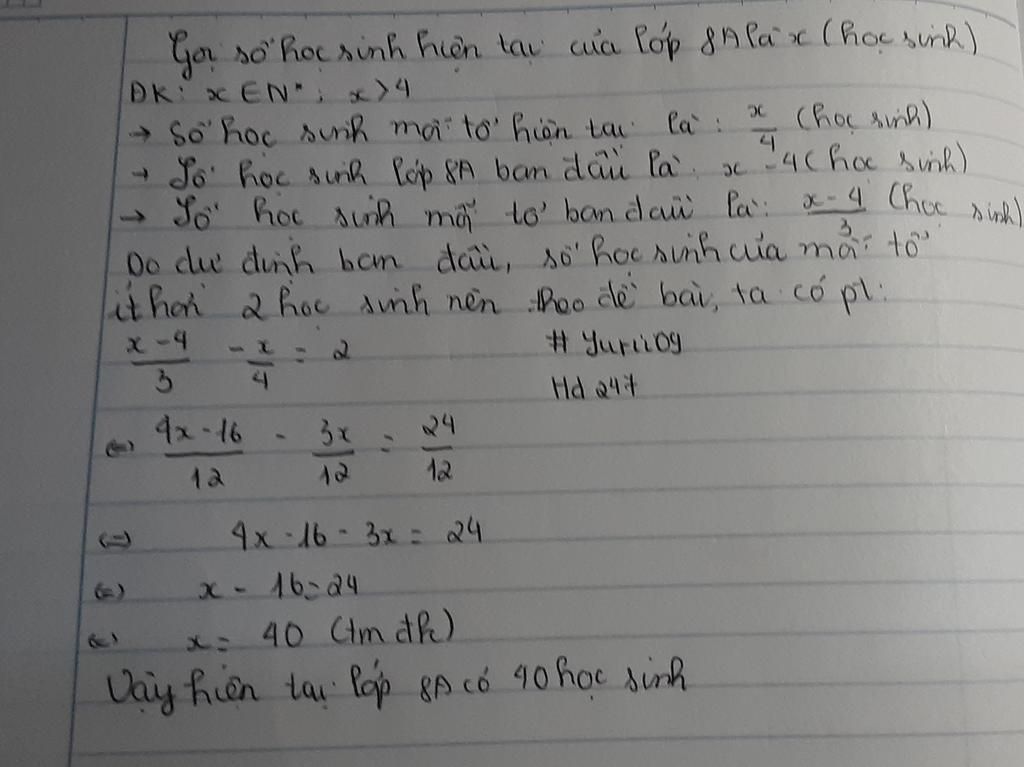 Gọi số học sinh hiện tại của lớp 8A là x (học sinh)
ĐK: x ∈ N*; x > 4
→ Số học sinh mỗi tổ hiện tại là: x/4 (học sinh)
→ Số học sinh lớp 8A ban đầu là: x - 4 (học sinh)
→ Số học sinh mỗi tổ ban đầu là: (x - 4)/3 (học sinh)
Do dự định ban đầu, số học sinh của mỗi tổ
ít hơn 2 học sinh nên theo đề bài, ta có pt:
(x - 4)/3 - x/4 = 2 # Yurii09
Hd 247
<=> (4x - 16)/12 - 3x/12 = 24/12
<=> 4x - 16 - 3x = 24
<=> x - 16 = 24
<=> x = 40 (tm đk)
Vậy hiện tại lớp 8A có 40 học sinh